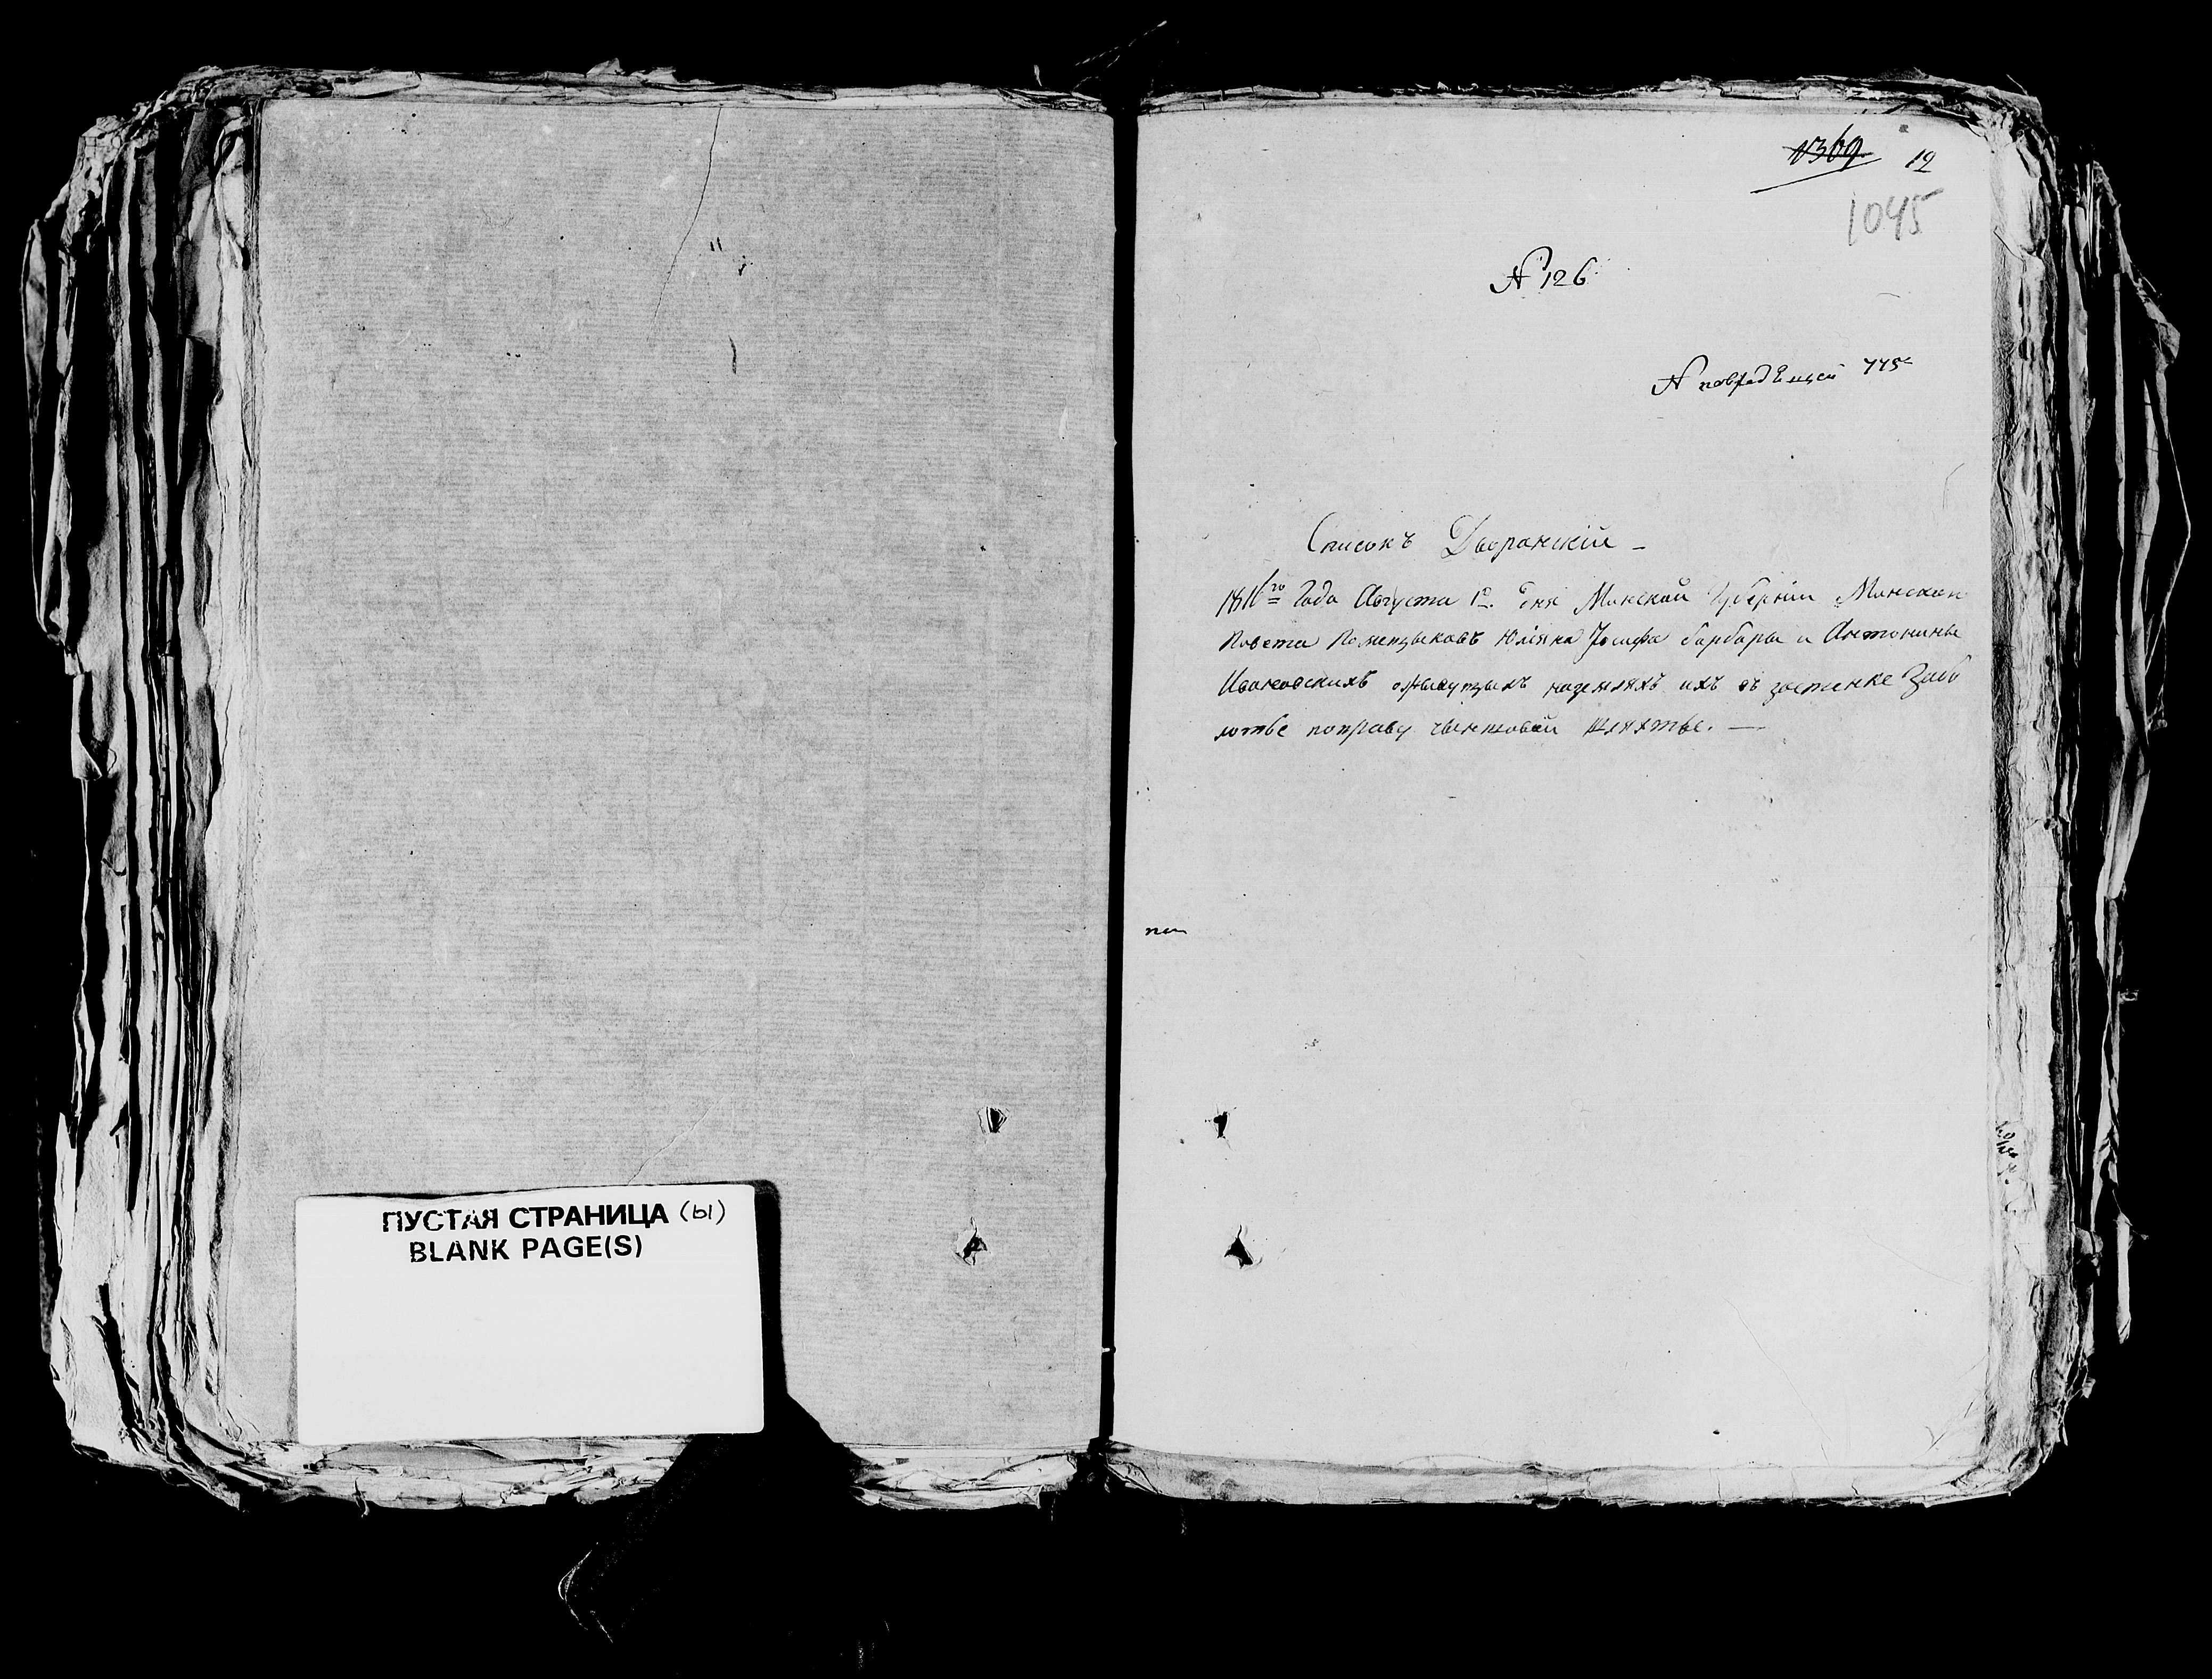 ПУСТАЯ СТРАНИЦА (ы)
BLANK PAGE(S)
12
1045
N 126
N 775
Списокъ Дворанскій –
1816го Года Августа 1го дня Минской Губерніи Минскаго
Повета Помещыковъ Юліяна Іосифа Барбары и Антонины
Ивановскихъ на земляхъ ихъ въ застенке Забо
лотье по праву чыншовой шляхтье. —